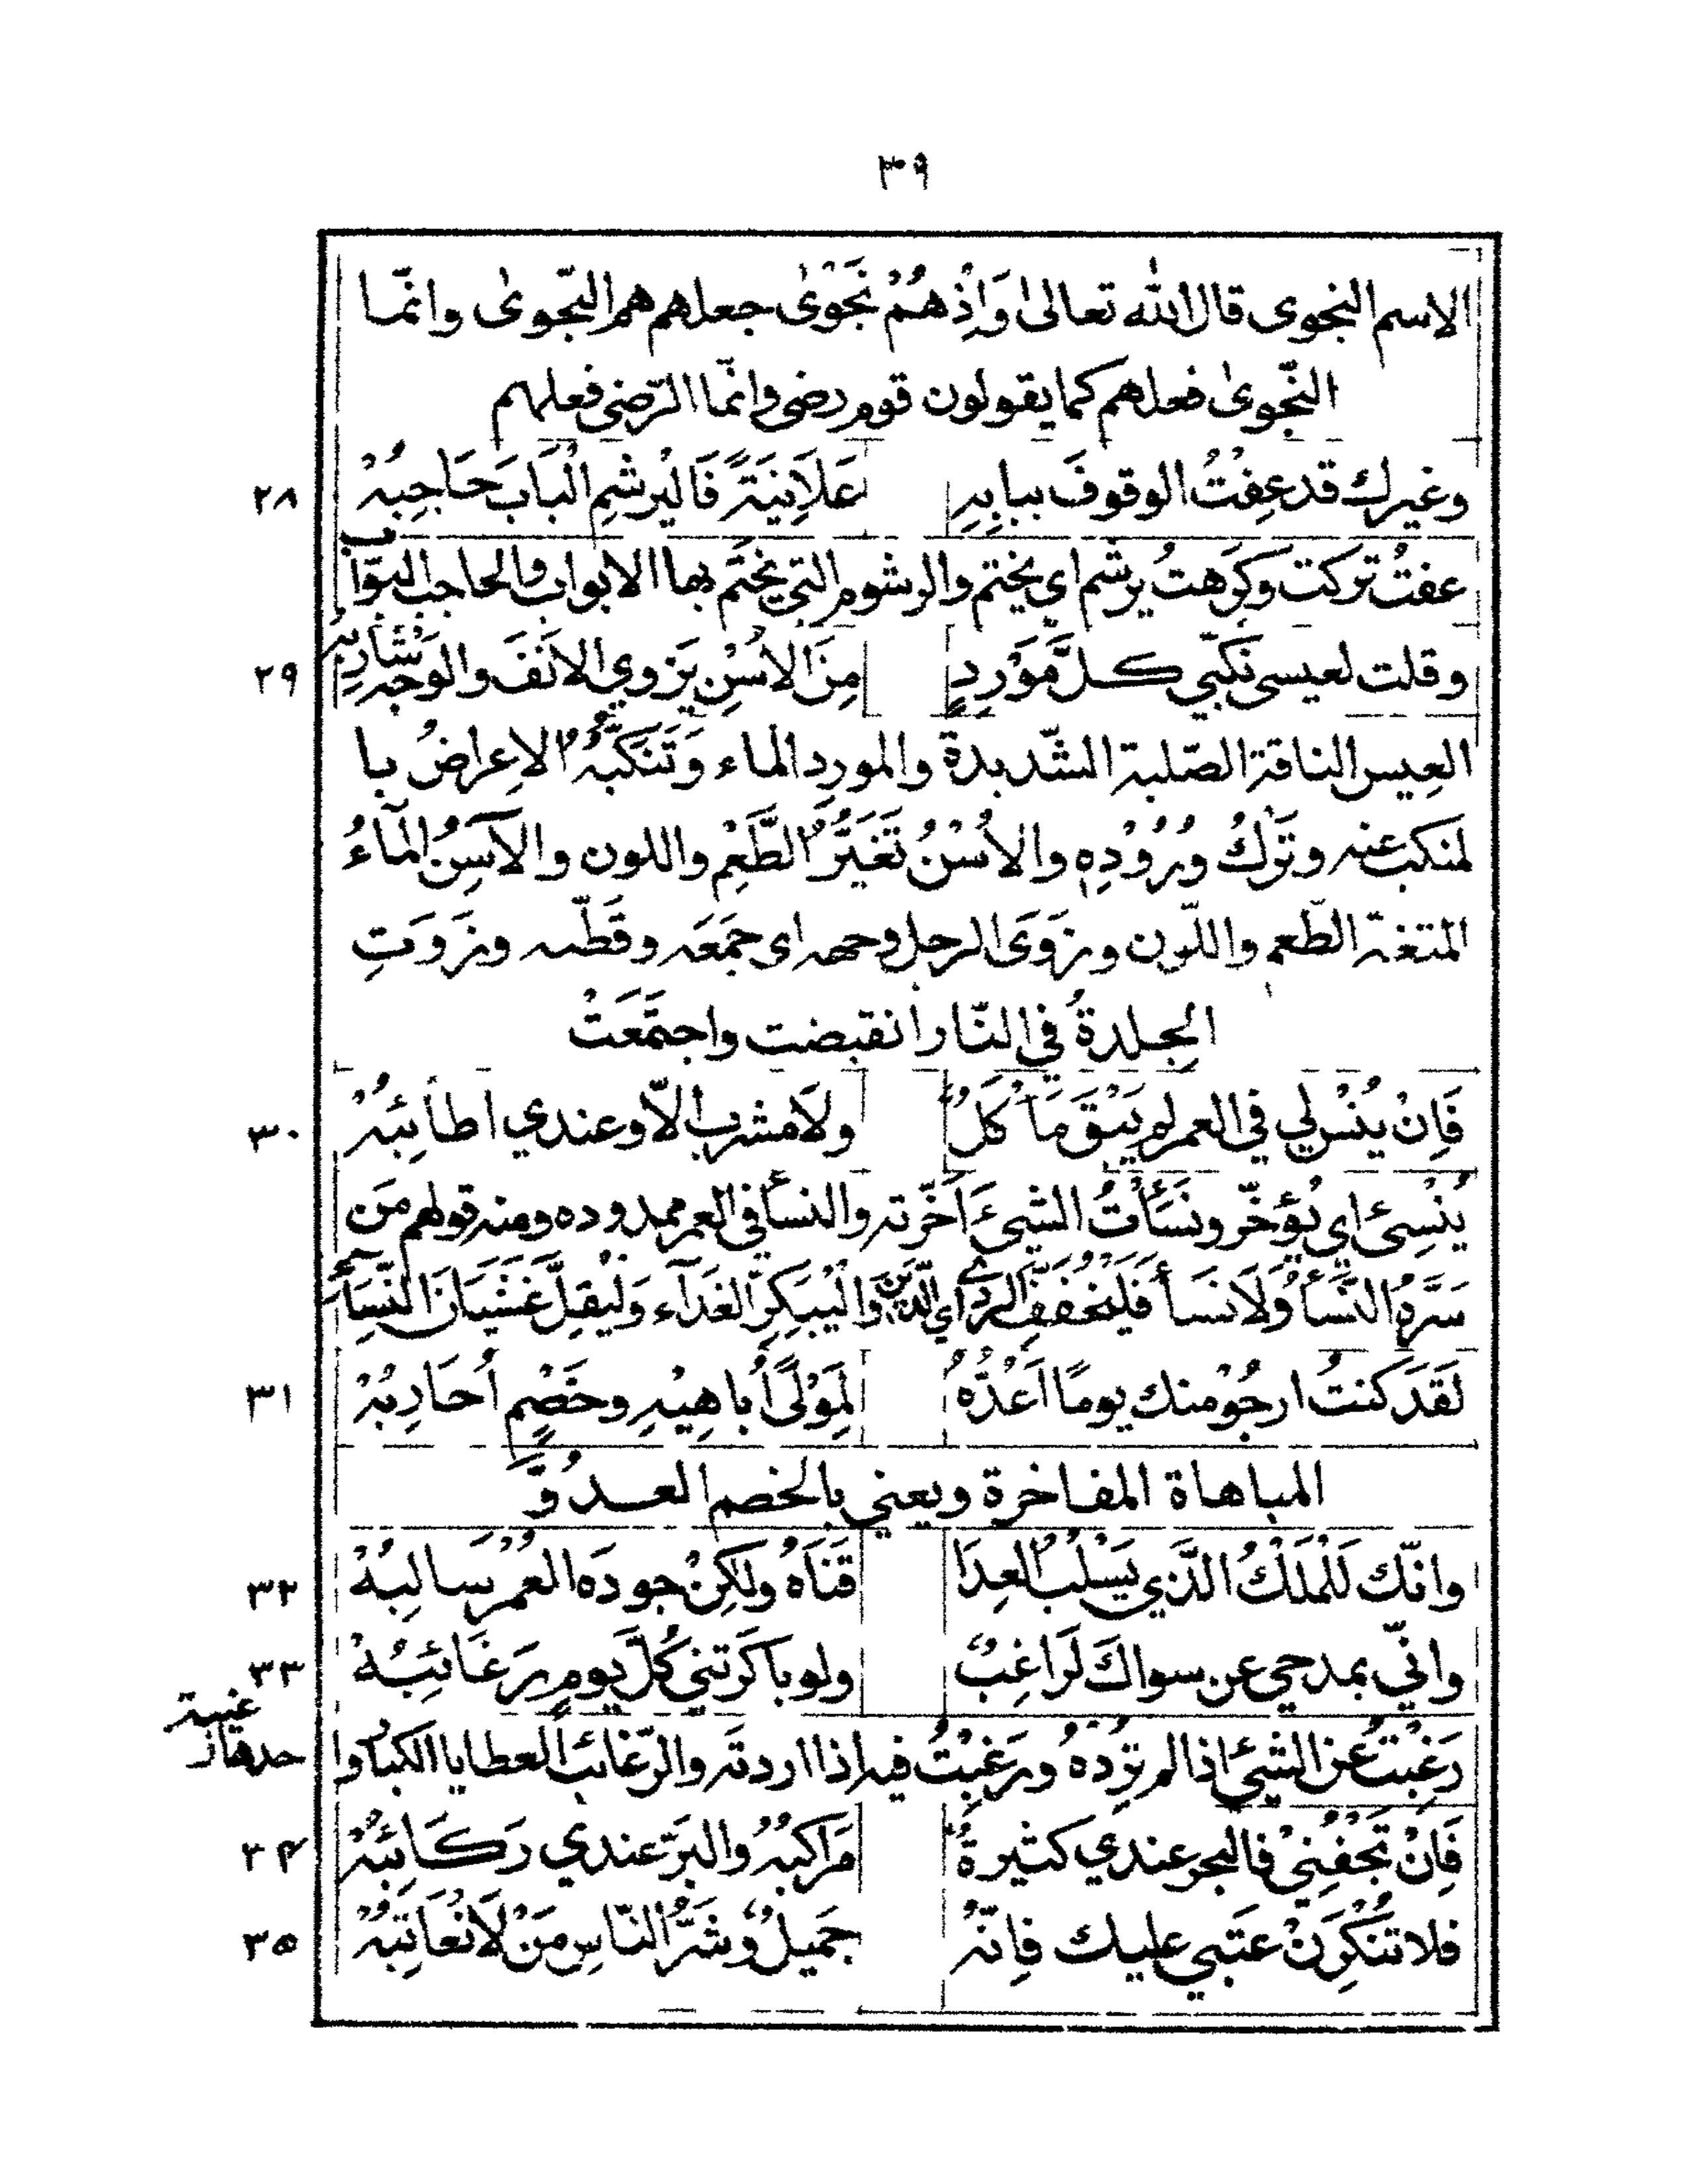 ٣٩
الاسم النجوى قال الله تعالىٰ وَاِذْهُمْ نَجْوَىٰ جعلهم هم النّجوىٰ وانّما
النّجوىٰ فعلهم كما يقولون قوم رضى وانّما الرّضى فعلهم
وغيرك قد عِفْتُ الوقوفَ ببابِهِ عَلَانِيَةً فَاليْرشُمِ الْبَابَ حَاجِبُهْ ٢٨
عفتُ تركت وكرَهتُ يرشم اي يختم والرشوم التي يختَم بها الابواب والحاجب البوّاب
وقلت لعيسى نَكِّبي كلَّ مَوْرِدٍ مِنَ الاُسْنِ يَزوي الانْفَ والوَجهَ شَارِبُهْ ٢٩
العِيس الناقة الصّلبة الشّديدة والمورد الماء وَتَنَكُّبُهُ الاِعراضُ با
لمنكب عنه وتَرْكُ وُرُوْدِهِ والاُسْنُ تَغَيُّرُ الطَّعْمِ واللون والآسِنُ المَآءُ
المتغة الطّعم واللّون وزَوَى الرجل وجهه اى جمَعَه وقَطّبه وزَوَتِ
الجِلدةُ في النّار انقبضت واجتمَعَتْ
فَاِنْ يُنْسَ لي في العمر لم يَبْقَ مَأكَلٌ ولَا مشرب الّا وعندي اطائبُهْ ٣٠
يُنْسِئ اي يُؤخّر ونَسَأْتُ الشيئَ اَخّرته والنسأ في العمر ممدوده ومنه قولهم مَن
سَرَّهُ النَّسَأُ وَلَا نَسَأَ فَلْيخفِّفِ الرِدٰى اي الدَّين وَالْيُبَكِرِ الغَدَآء وَلْيُقِلَّ غَشَيَانَ النّسَآء
لَقَدَ كنتُ ارجُوْ منك يومًا اَعُدُّهُ لِمَوْلًى اُباهِيْهِ وخَصْمٍ اُحَارِبُهْ ٣١
المباهاة المفاخرة ويعني بالخصم العدُوَّ
وانّك لَلْمَلْكُ الَّذي يَسْلُبُ العِدَا قَنَاهُ ولٰكِنْ جودَه العُمْرَ سالِبُهْ ٣٢
وانّي بمدحي عن سواكَ لَرَاغِبٌ ولو باكَرَتني كُلَّ يومٍ رَغَائِبُهْ ٣٣
رَغِبْتُ عن الشيئ اذا لم تُرِدهُ ورَغِبْتُ فيه اذا اردتَه والرّغائب العطايا الكبار وا
حدها رغيبة
فَاِنْ تَجْفُنِيْ فالبحر عندي كثيرةٌ مَراكبُهُ والبَرّ عندي رَكَائبُهْ ٣٤
فلا تنْكُرَنْ عَتَبي عليك فاِنّهُ جَميلٌ وشَرُّ النّاسِ مَنْ لَا تُعَاتِبُهْ ٣٥